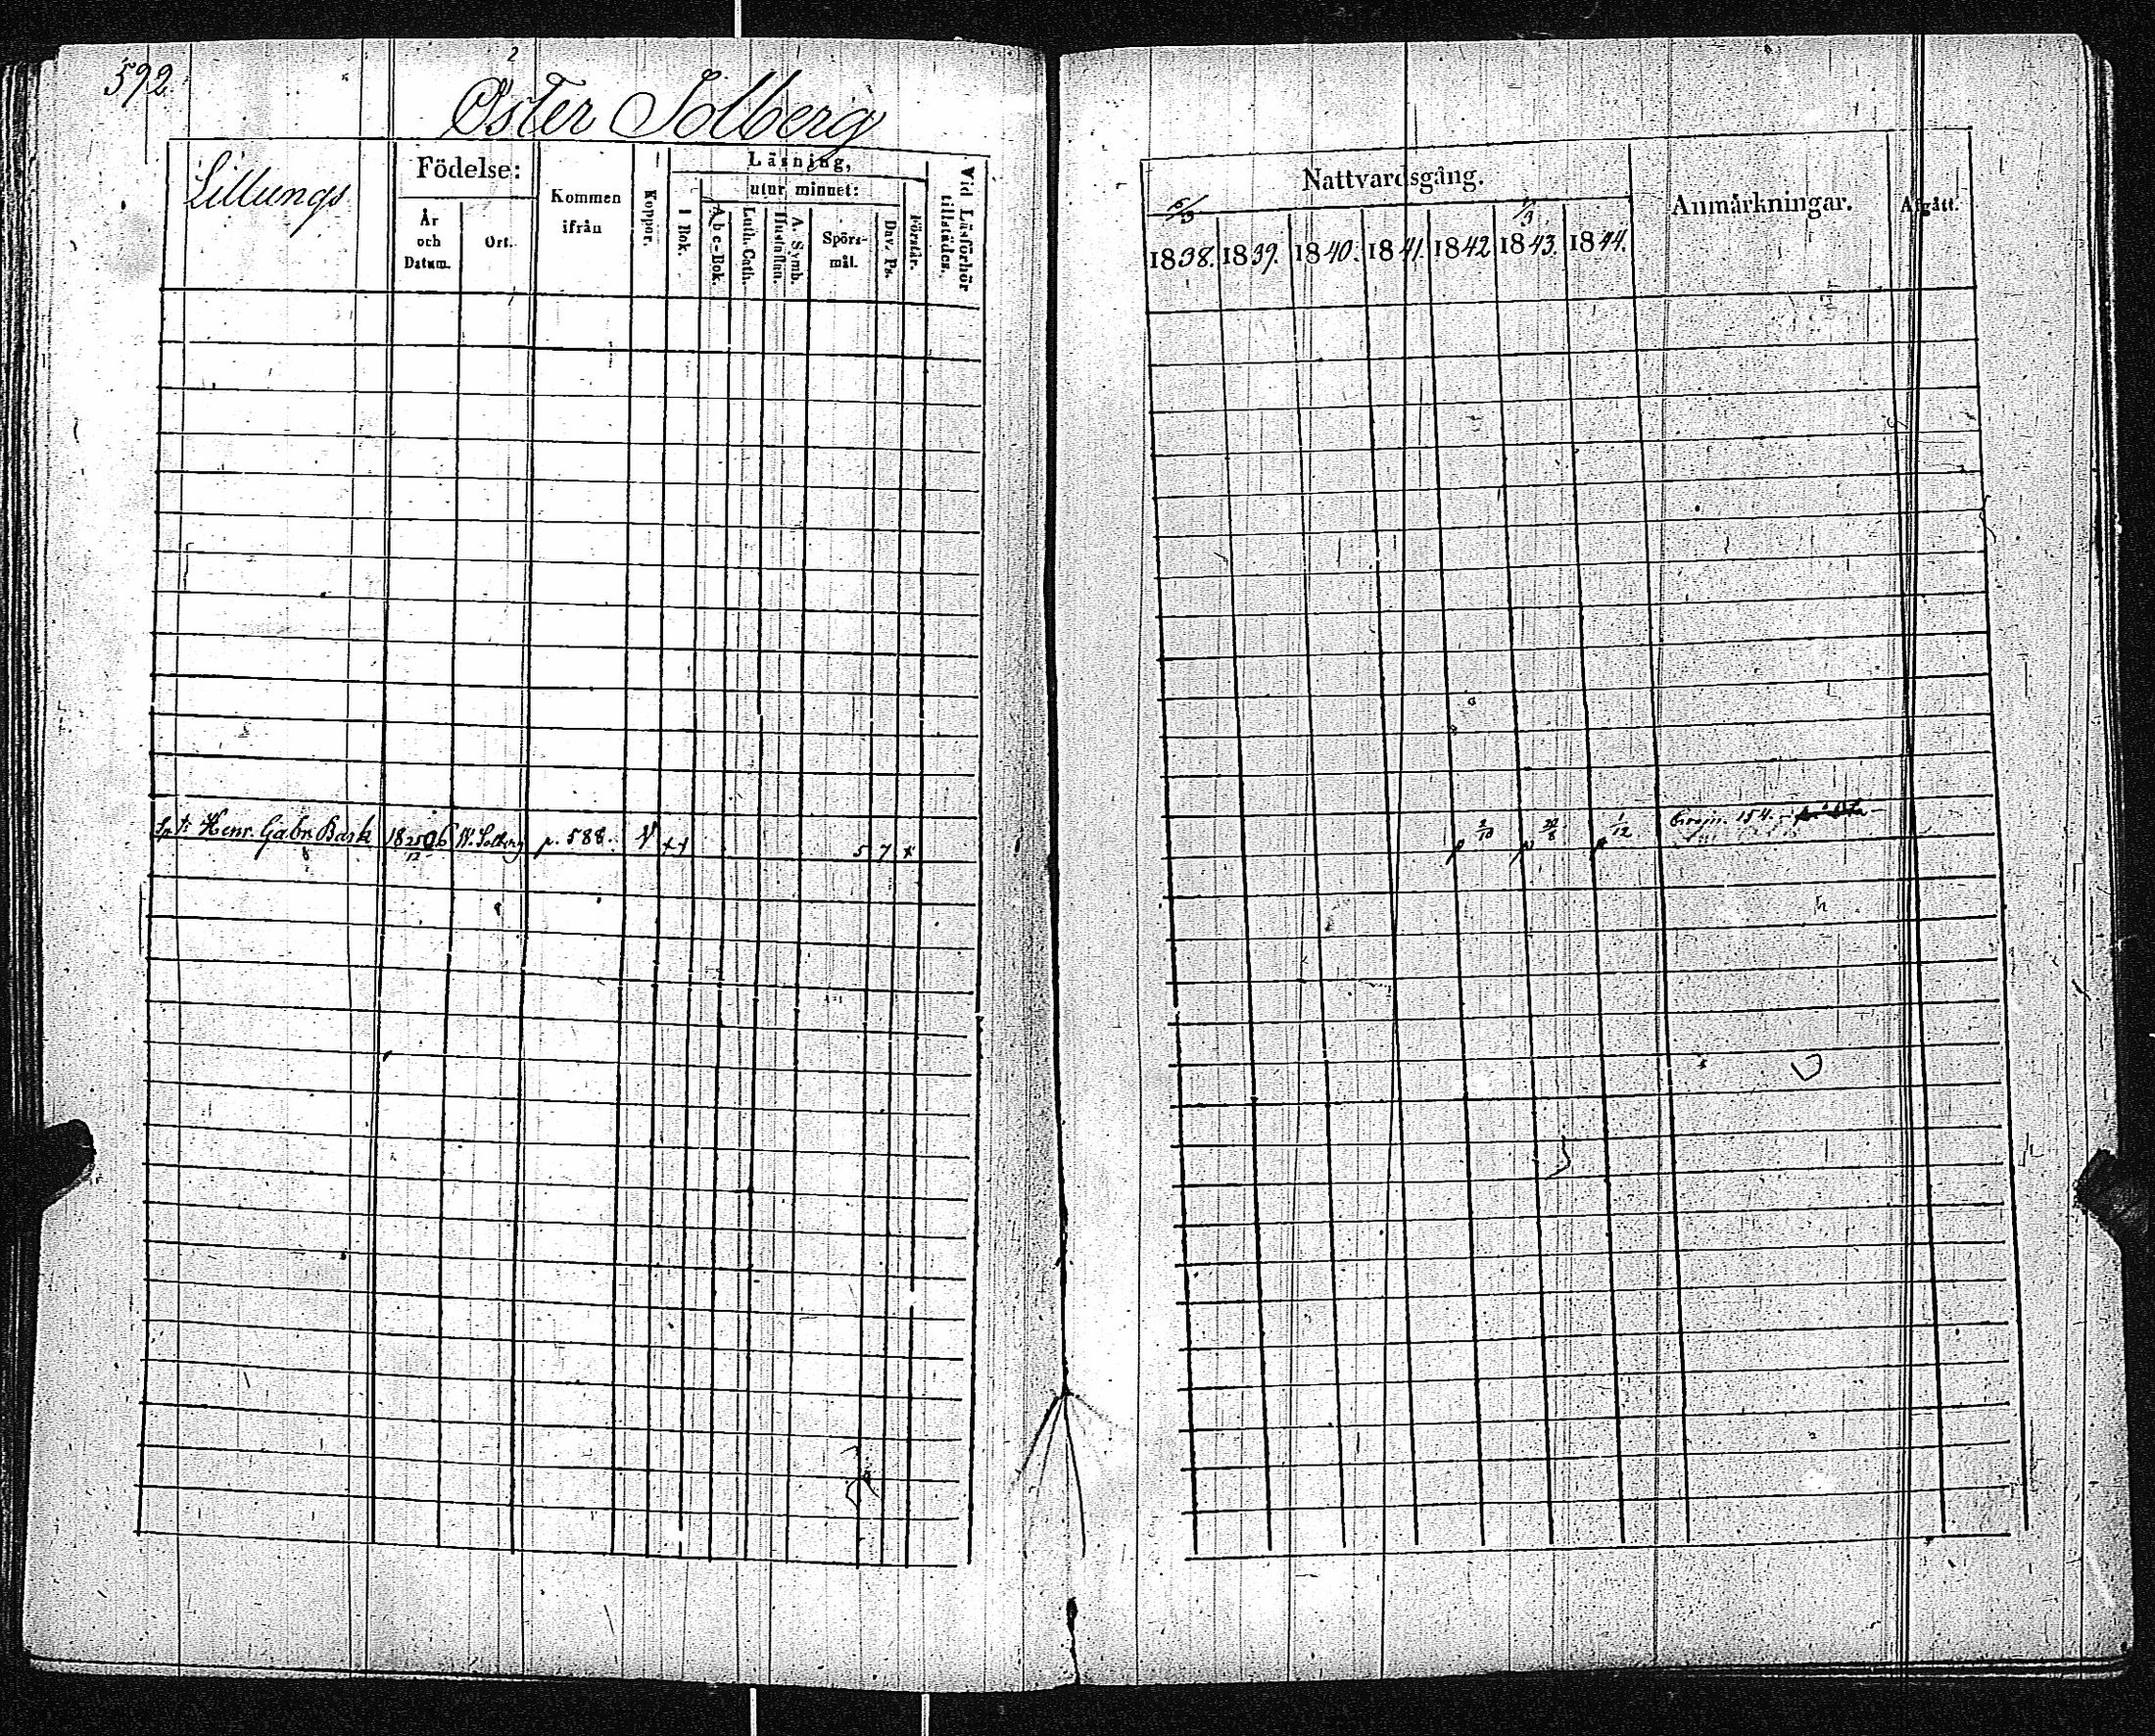 592.
2
Öster Solberg
Lillungs
Födelse:
År
och
Datum.
Ort.
Kommen
ifrån
Koppor.
Läsning,
I Bok.
utur minnet:
A b c-Bok.
Luth. Cath.
Hustaflan.
A. Symb.
Spörs-
mål.
Dav. Ps.
Förstår.
Vid Läsförhör
tillstädes.
Henr. Gabr. Bask 18 25/12 06 W. Solberg p. 588. V ++ 5 7 x
Nattvardsgång.
1838. 1839. 1840. 1841. 1842 1843. 1844.
Anmärkningar.
Afgått.
2/10 20/8 1/12 154.